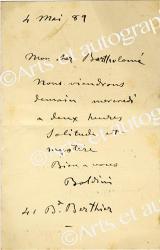 4 Mai 89
Mon cher Bartholomé
Nous viendrons
demain mercredi
a deux heures
Solitude et
mystère
Bien a vous
Boldini
41 Bd Berthier